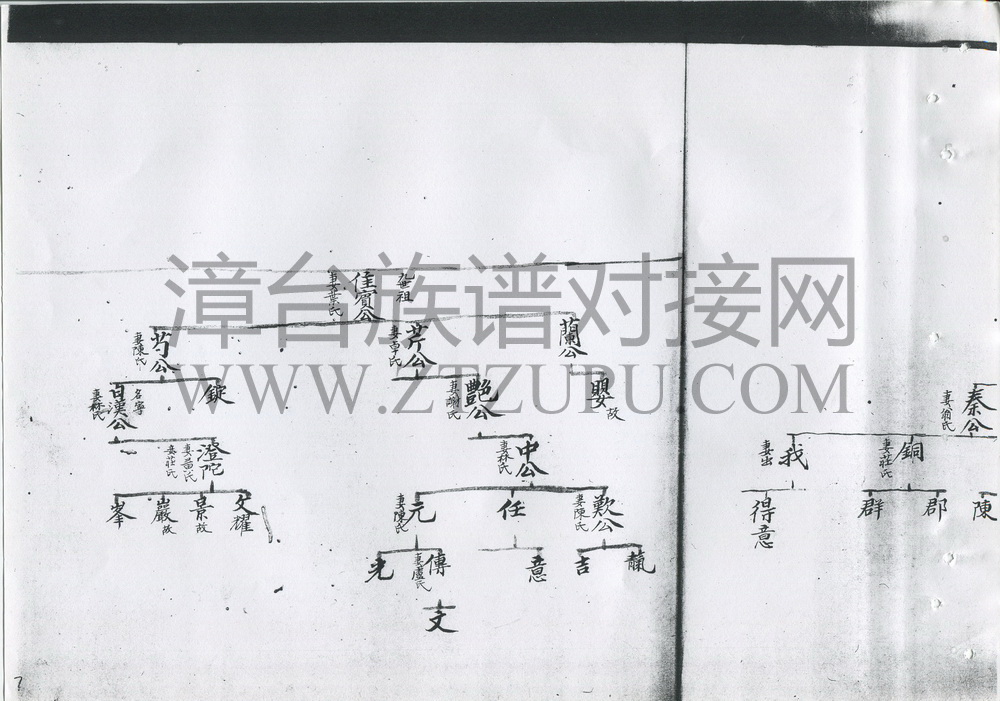 漳台族谱对接网
WWW.ZTZUPU.COM
祖
賓公
蘭公
芹公
妻
芍公
妻陳氏
嬰
故
艷公
妻
錠
名寧
漢公
妻林氏
中公
妻林氏
澄陀
妻黃氏
妻莊氏
歎公
妻陳氏
任
元
妻陳氏
文耀
景
故
巖
故
峯
吉
意
傳
妻盧氏
光
文
秦公
妻翁氏
銅
妻莊氏
我
妻出
陳
郡
群
得意
7